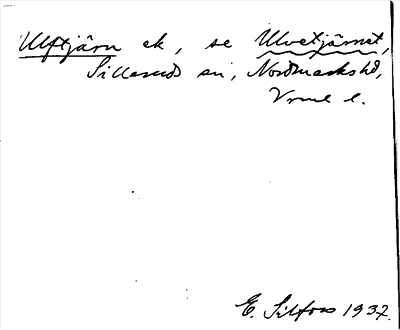 Ulftjärn ek, se Ulvetjärnet,
Sillerud sn, Nordmarks hd,
Vrml l.
E. Silfors 1937.